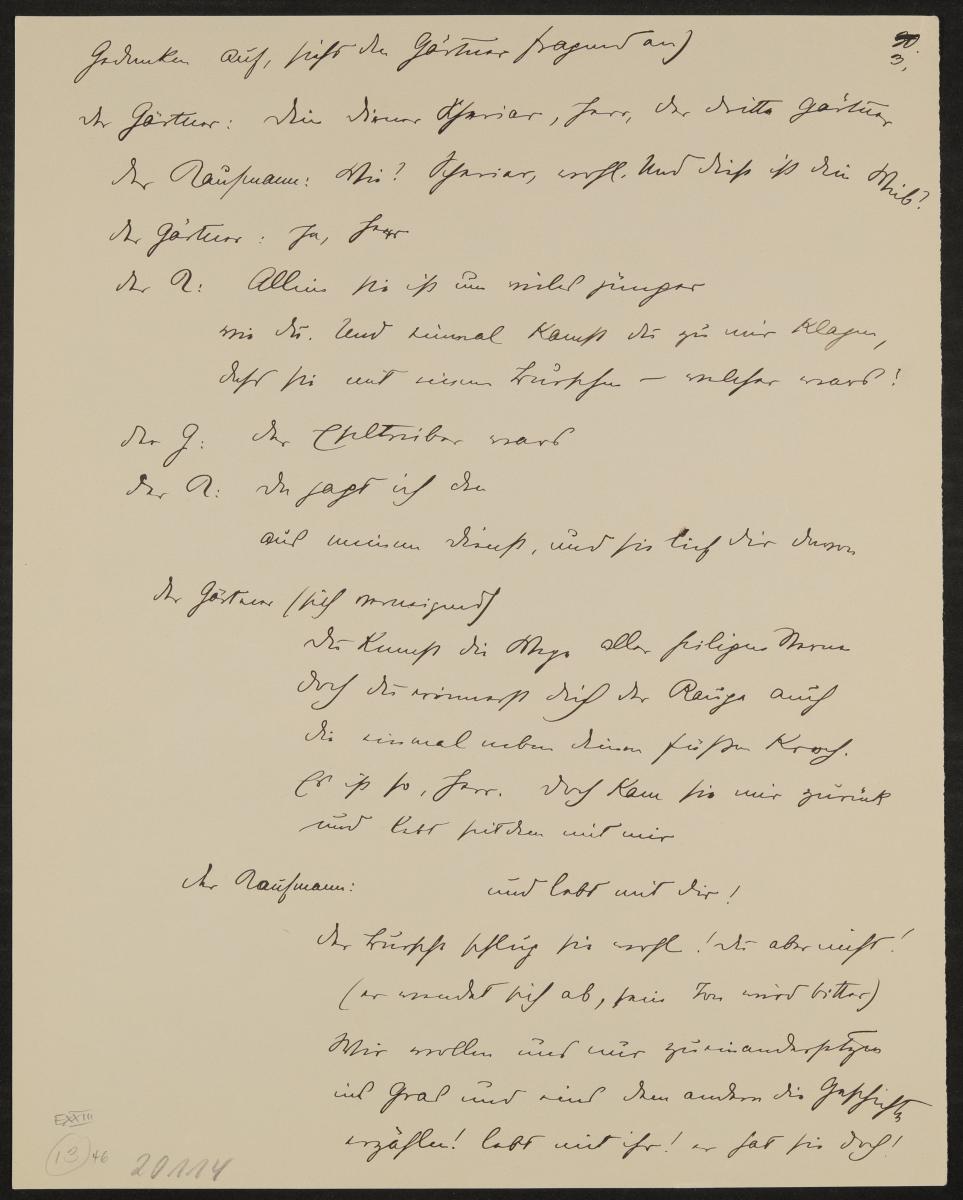 Gedanken auf, sieht den Gärtner fragend an)
3.
der Gärtner: Dein Diener Scheriar, Herr, der dritte Gärtner
der Kaufmann: Wie? Scheriar, wohl. Und dies ist dein Weib?
der Gärtner: Ja, Herr
der K: Allein sie ist um vieles jünger
wie du. Und einmal kamst du zu mir klagen,
dass sie mit einem Burschen – welcher wars!
der G: der Eseltreiber wars
der K: da jagt ich den
aus meinem Dienst, und sie lief dir davon
der Gärtner (sich verneigend)
Du kennst die Wege aller heiligen Sterne
doch du erinnerst dich der Raupe auch
die einmal neben deinen Füßen kroch.
Es ist so, Herr. Doch kam sie mir zurück
und lebt seitdem mit mir
der Kaufmann: und lebt mit dir!
der Bursch schlug sie wohl! Du aber nicht!
(er wendet sich ab, sein Ton wird bitter)
Wir wollen uns nur zueinandersetzen
ins Gras und eins dem andern die Geschichte
erzählen! lebt mit ihr! er hat sie doch!
EXXIII
13 46
20114